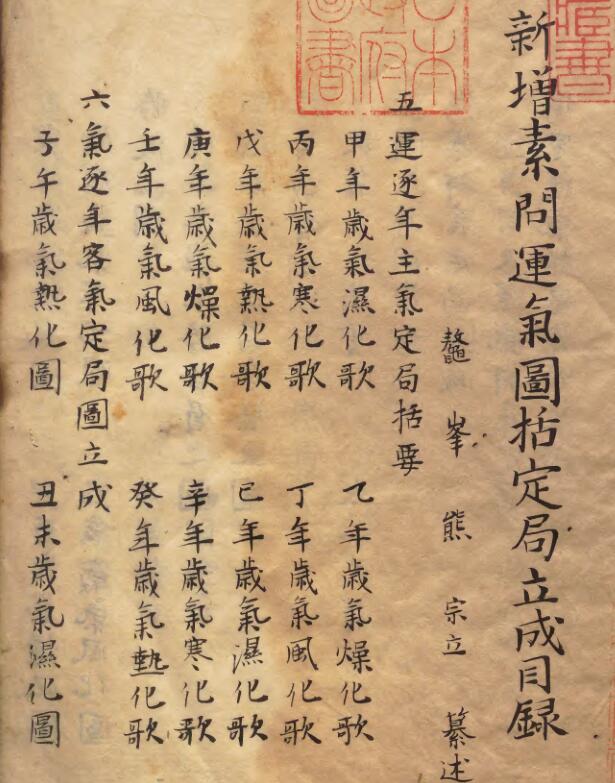 新增素問運氣圖括定局立成目錄
鼇峯熊宗立纂述
五運逐年主氣定局括要
甲年歲氣濕化歌 乙年歲氣燥化歌
丙年歲氣寒化歌 丁年歲氣風化歌
戊年歲氣熱化歌 己年歲氣濕化歌
庚年歲氣燥化歌 辛年歲氣寒化歌
壬年歲氣風化歌 癸年歲氣熱化歌
六氣逐年客氣定局圖立成
子午歲氣熱化圖 丑未歲氣濕化圖